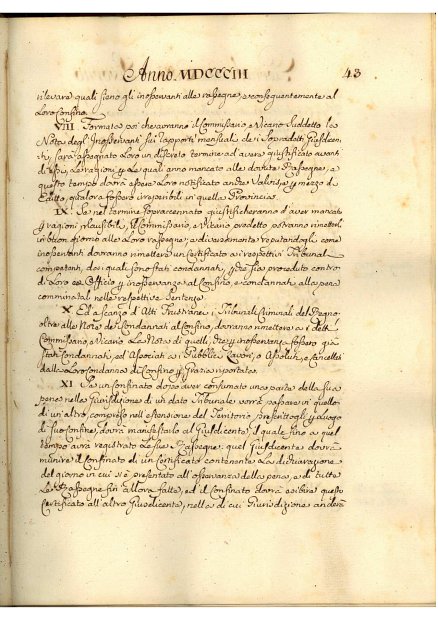 Anno. MDCCCIII 43
rilevare quali sieno gli inosservanti alle rassegne, e conseguentemente al
Loro Confino.
VIII Formate poi che avranno il Commissario, e Vicario suddetto le
Note degl'Inosservanti sui rapporti mensuali dei sopradetti Giusdicen-
ti, sarà assegnato Loro un discreto termine ad avere giustificato avanti
di essi, Le ragioni per Le quali anno mancato alle dovute Rassegne, e
questo tempo dovrà essere Loro notificato anche per mezzo di
Editto, qualora fossero irreperibili in quella Provincia.
IX. Se nel termine sopraccennato giustificheranno d'aver mancato
per ragioni plausibili, il Commissario, e Vicario predetto potranno rimetterli
in buon giorno alle Loro rassegne; e diversamente reputandogli come
inosservanti dovranno rimettere un Certificato ai respettivi Tribunali
competenti, dai quali sono stati condannati, perchè sia proceduto contro
di Loro ex Officio per inosservanza al Confino, e condannati alla pena
comminata nelle respettive Sentenze.
X Ed a scanzo d'Atti Frustranei, i Tribunali Criminali del Regno
oltre alle Note dei Condannati al Confino, dovranno rimettere a i detti
Commissario, e Vicario La Nota di quelli, che per inosservenza fossero già
stati Condannati, ed Associati a i Pubblici Lavori, o Assoluti, e Cancellati
dalla Loro Condanna di Confino per Grazie riportate.
XI Se un Confinato dopo aver consumato una parte della sua
pena nella Giurisdizione di un dato Tribunale vorrà passare in quello
di un altro, compreso nell'estensione del Territorio prescrittogli per luogo
di suo Confine, dovrà manifestarlo al Giusdicente il quale fino a quel
tempo avrà registrato Le sue Rassegne; quel Giusdicente dovrà
munire il Confinato di un Certificato contenente La dichiarazione
del giorno in cui si è presentato all'osservanza della pena, e di tutte
Le Rassegne fin'allora fatte, ed il Confinato dovrà esibire questo
Certificato all'altro Giusdicente, nella di cui Giurisdizione anderà